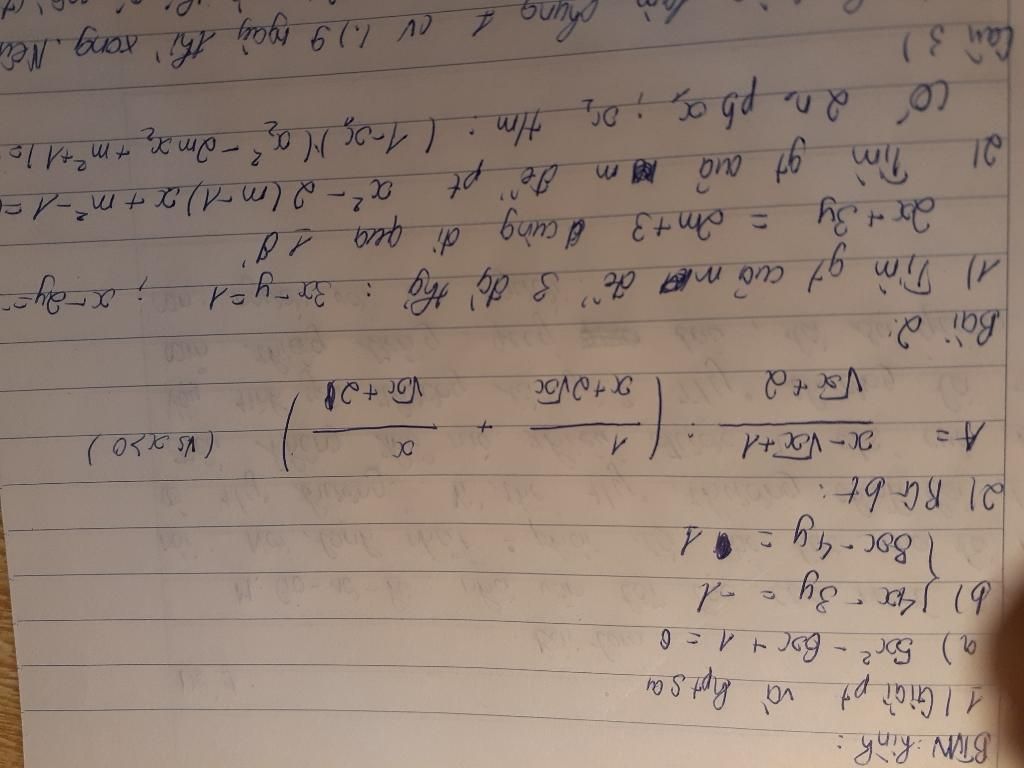 BTVN. hình:
1) Giải pt và hpt sa
a) 5x² - 6x + 1 = 0
b) { 4x - 3y = -1
3x - 4y = 1
2) RG bt:
A = (x - √x + 1)/(√x + 2) : (1/(x + 2√x) + x/(√x + 2)) (vs x>0)
Bài 2:
1) Tìm gt của m để 3 đg thg : 3x - y = 1 ; x - 2y =
2x + 3y = 2m + 3 cùng đi qua 1 đ'
2) Tìm gt của m để pt x² - 2(m-1)x + m² - 1 =
có 2 n₀ pb x₁ ; x₂ t/m : (1-x₁)(x₂² - 2mx₂ + m² + 1) =
Bài 3)
làm chung 1 cv 9 ngày thì xong. Nếu